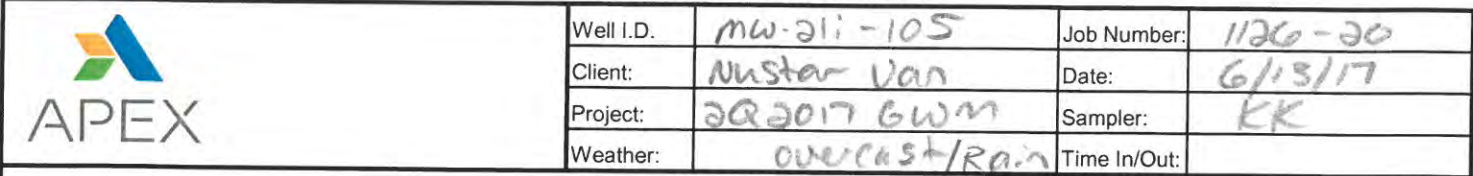 APEX
Well I.D. MW-21i-105 Job Number: 1126-20
Client: NuStar Van Date: 6/13/17
Project: 2Q2017 GWM Sampler: KK
Weather: overcast/Rain Time In/Out: